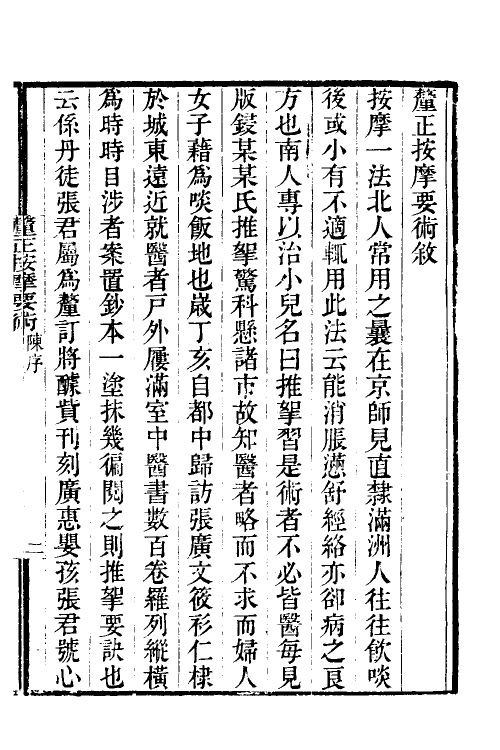 釐正按摩要術敘
按摩一法北人常用之曩在京師見直隸滿洲人往往飲啖
後或小有不適輒用此法云能消脹懣舒經絡亦卻病之良
方也南人專以治小兒名曰推拏習是術者不必皆醫每見
版鋟某某氏推拏驚科懸諸市故知醫者略而不求而婦人
女子藉為啖飯地也歲丁亥自都中歸訪張廣文筱衫仁棣
於城東遠近就醫者戶外屨滿室中醫書數百卷羅列縱橫
為時時目涉者案置鈔本一塗抹幾徧閱之則推拏要訣也
云係丹徒張君屬為釐訂將醵貲刊刻廣惠嬰孩張君號心
釐正按摩要術
陳序
二